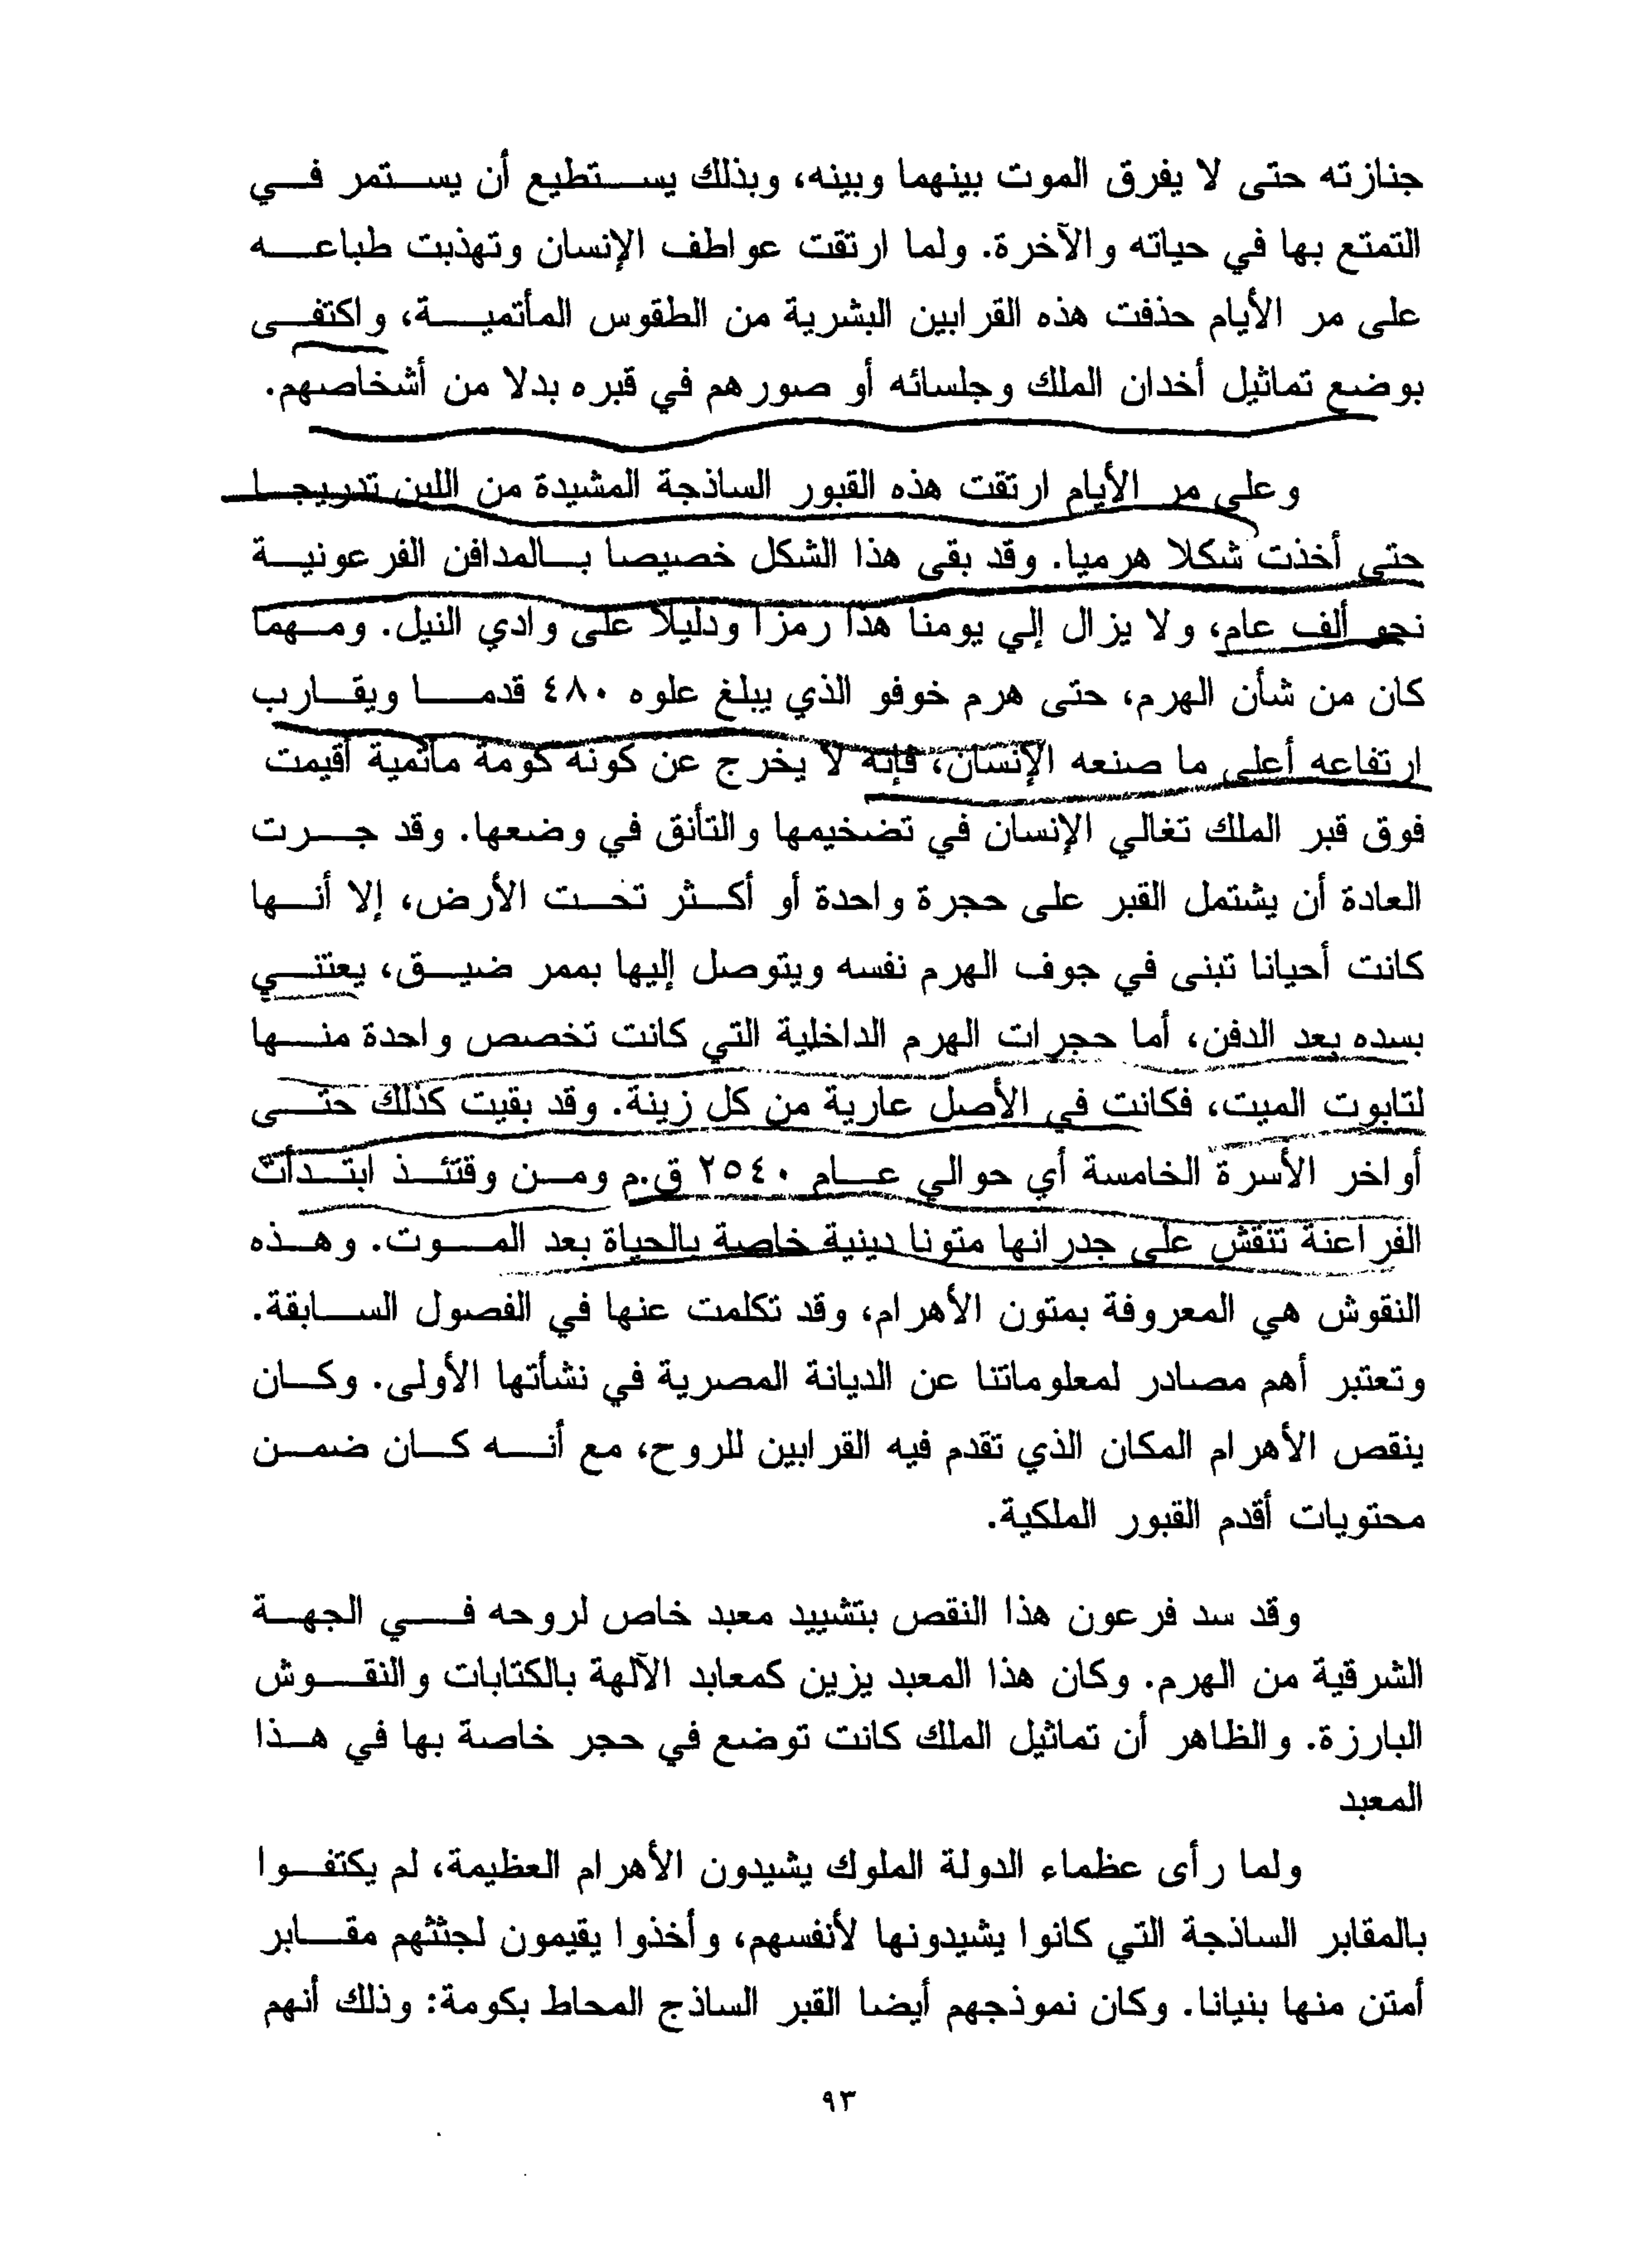 جنازته حتى لا يفرق الموت بينهما وبينه، وبذلك يستطيع أن يستمر في
التمتع بها في حياته والآخرة. ولما ارتقت عواطف الإنسان وتهذبت طباعه
على مر الأيام حذفت هذه القرابين البشرية من الطقوس المأتمية، واكتفى
بوضع تماثيل أخدان الملك وجلسائه أو صورهم في قبره بدلا من أشخاصهم.
وعلى مر الأيام ارتقت هذه القبور الساذجة المشيدة من اللبن تدريجا
حتى أخذت شكلا هرميا. وقد بقى هذا الشكل خصيصا بالمدافن الفرعونية
نحو ألف عام، ولا يزال إلي يومنا هذا رمزا ودليلا على وادي النيل. ومهما
كان من شأن الهرم، حتى هرم خوفو الذي يبلغ علوه ٤٨٠ قدما ويقارب
ارتفاعه أعلى ما صنعه الإنسان، فإنه لا يخرج عن كونه كومة مأتمية أقيمت
فوق قبر الملك تغالي الإنسان في تضخيمها والتأنق في وضعها. وقد جرت
العادة أن يشتمل القبر على حجرة واحدة أو أكثر تحت الأرض، إلا أنها
كانت أحيانا تبنى في جوف الهرم نفسه ويتوصل إليها بممر ضيق، يعتني
بسده بعد الدفن، أما حجرات الهرم الداخلية التي كانت تخصص واحدة منها
لتابوت الميت، فكانت في الأصل عارية من كل زينة. وقد بقيت كذلك حتى
أواخر الأسرة الخامسة أي حوالي عام ٢٥٤٠ ق.م ومن وقتئذ ابتدأت
الفراعنة تنقش على جدرانها متونا دينية خاصة بالحياة بعد الموت. وهذه
النقوش هي المعروفة بمتون الأهرام، وقد تكلمت عنها في الفصول السابقة.
وتعتبر أهم مصادر لمعلوماتنا عن الديانة المصرية في نشأتها الأولى. وكان
ينقص الأهرام المكان الذي تقدم فيه القرابين للروح، مع أنه كان ضمن
محتويات أقدم القبور الملكية.
وقد سد فرعون هذا النقص بتشييد معبد خاص لروحه في الجهة
الشرقية من الهرم. وكان هذا المعبد يزين كمعابد الآلهة بالكتابات والنقوش
البارزة. والظاهر أن تماثيل الملك كانت توضع في حجر خاصة بها في هذا
المعبد
ولما رأى عظماء الدولة الملوك يشيدون الأهرام العظيمة، لم يكتفوا
بالمقابر الساذجة التي كانوا يشيدونها لأنفسهم، وأخذوا يقيمون لجثثهم مقابر
أمتن منها بنيانا. وكان نموذجهم أيضا القبر الساذج المحاط بكومة: وذلك أنهم
٩٣